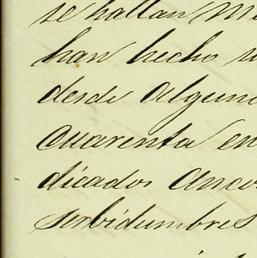 se hallan
han hecho
desde alguna
cuarenta en
dicados
serbidumbres